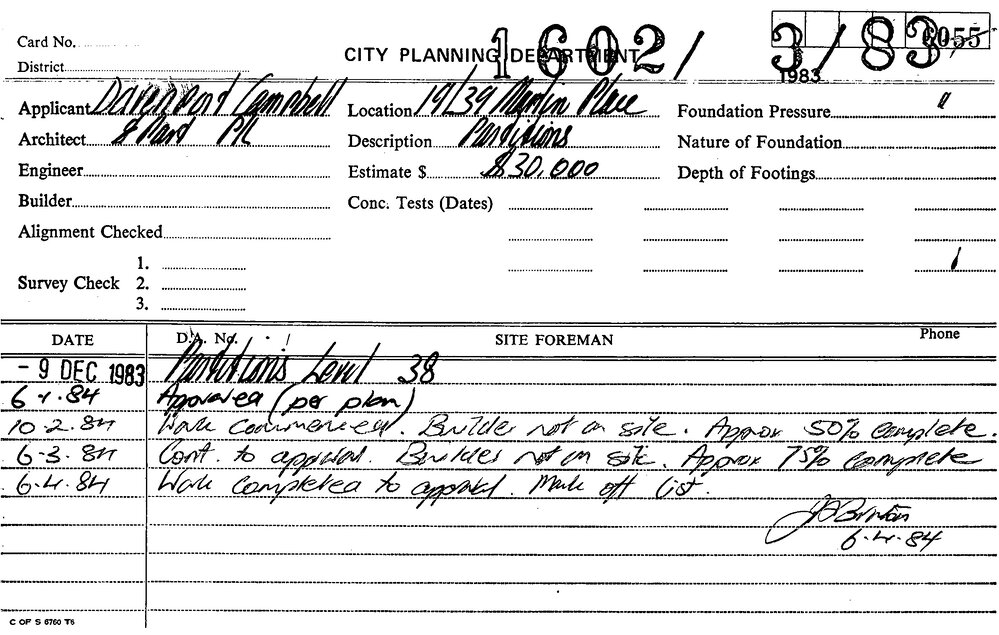 Card No.
CITY PLANNING DEPARTMENT
1602/3/83
6055
District
1983
Applicant Davenport Campbell
Location 19/39 Martin Place
Foundation Pressure
Architect & Part
Description Partitions
Nature of Foundation
Engineer
Estimate $ $30,000
Depth of Footings
Builder
Conc. Tests (Dates)
Alignment Checked
Survey Check 1.
2.
3.
DATE D.A. No. SITE FOREMAN Phone
- 9 DEC 1983 Partitions Level 38
6.1.84 Approved (per plan)
10.2.84 Work commenced. Builder not on site. Approx 50% complete.
6-3.84 Cont. to approval. Builder not on site. Approx 75% complete
6.4.84 Work completed to approval. Mark off list.
6.4.84
C OF S 6760 T6